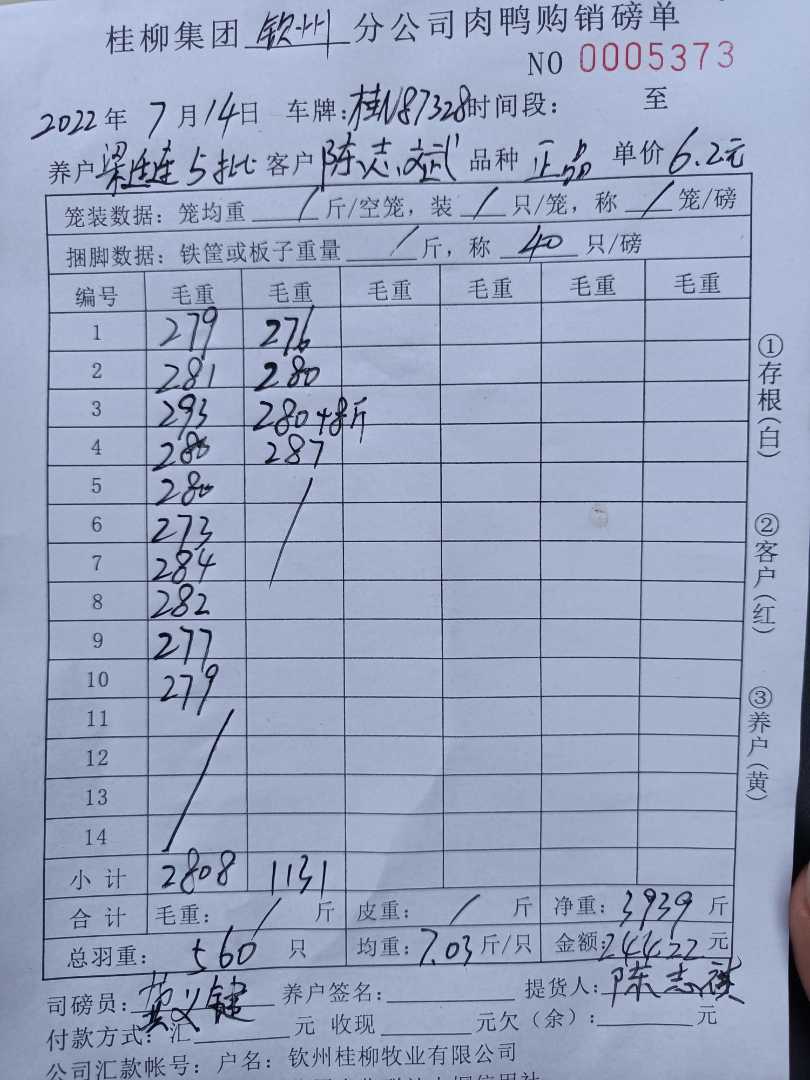 桂柳集团 钦州 分公司肉鸭购销磅单
NO 0005373
2022年 7月14日 车牌:桂N87328时间段: 至
养户梁连连5批 客户陈志斌 品种 正品 单价6.2元
笼装数据: 笼均重 / 斤/空笼, 装 / 只/笼, 称 / 笼/磅
捆脚数据: 铁筐或板子重量 / 斤, 称 40 只/磅
编号 毛重 毛重 毛重 毛重 毛重 毛重
1 279 276
2 281 280
3 293 280+8斤
4 280 287
5 280 /
6 273
7 284
8 282
9 277
10 279
11 /
12
13
14
小计 2808 1131
合计 毛重: / 斤 皮重: / 斤 净重: 3939 斤
总羽重: 560 只 均重: 7.03 斤/只 金额: 24422 元
司磅员: 养户签名: 提货人: 陈志
付款方式: 汇 元 收现 元欠(余): 元
公司汇款帐号: 户名: 钦州桂柳牧业有限公司
①存根(白)
②客户(红)
③养户(黄)